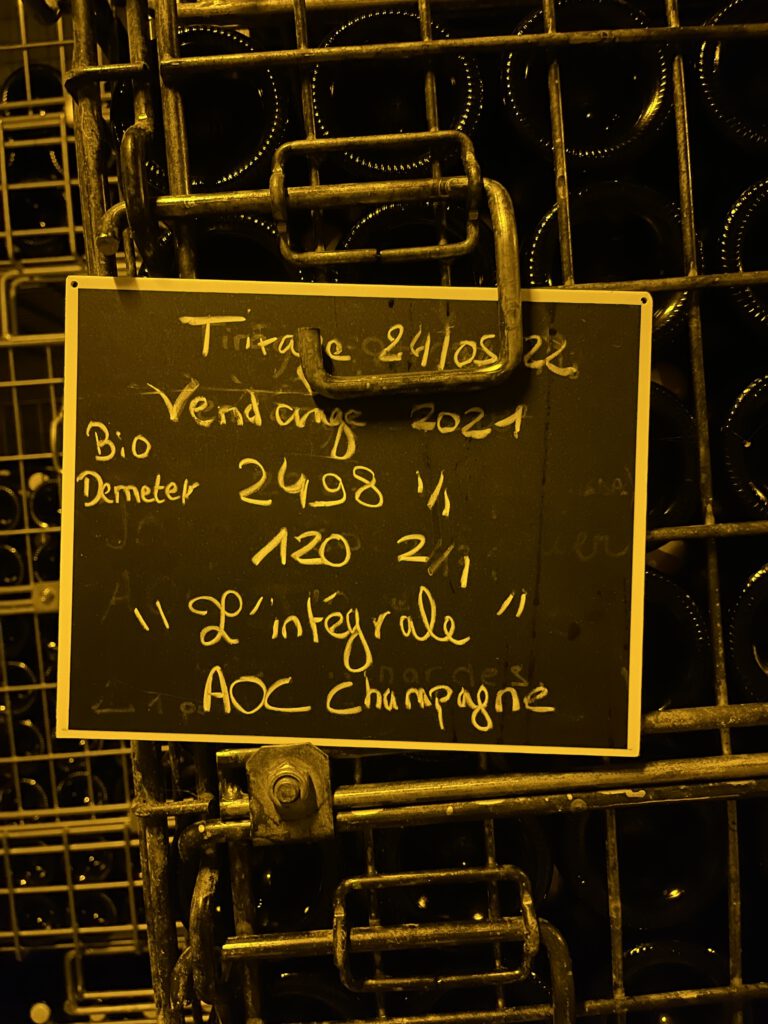 Tirage 24/05/22
Vendange 2021
Bio
Demeter
2498 1/1
120 2/1
"L'intégrale"
AOC Champagne